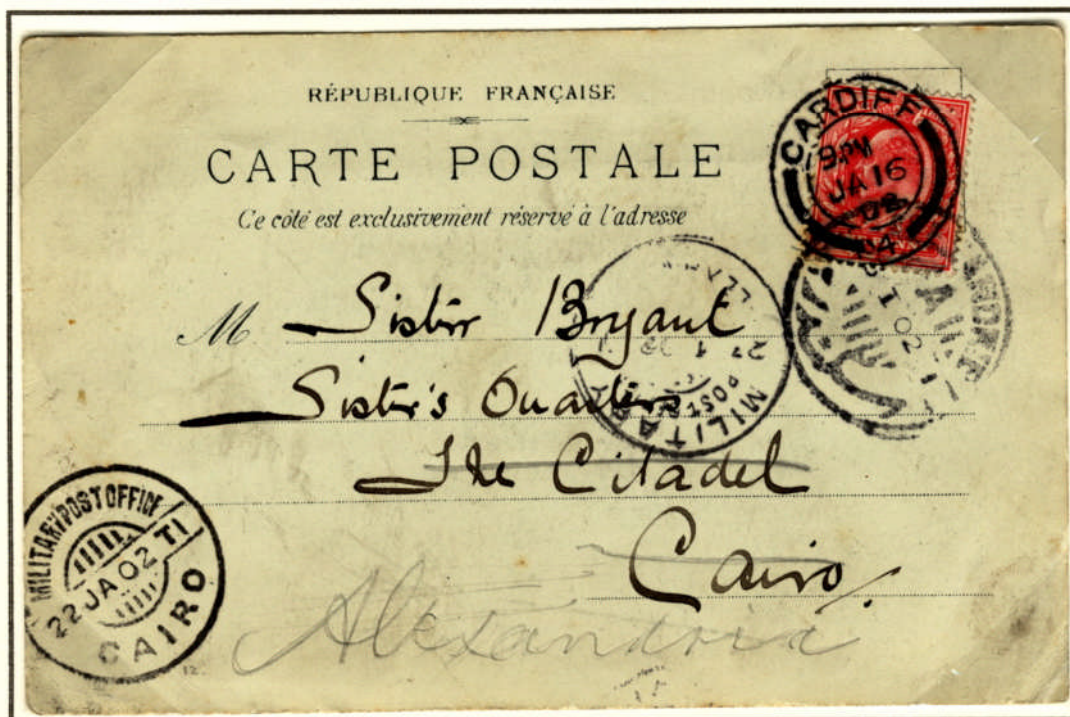 RÉPUBLIQUE FRANÇAISE
CARTE POSTALE
Ce côté est exclusivement réservé à l'adresse
CARDIFF
9 PM
JA 16
02
M Sister Bryant
Sister's Quarters
The Citadel
Cairo
Alexandria
MILITARY POST OFFICE
22 JA 02 T1
CAIRO
MILITAR
POST
12